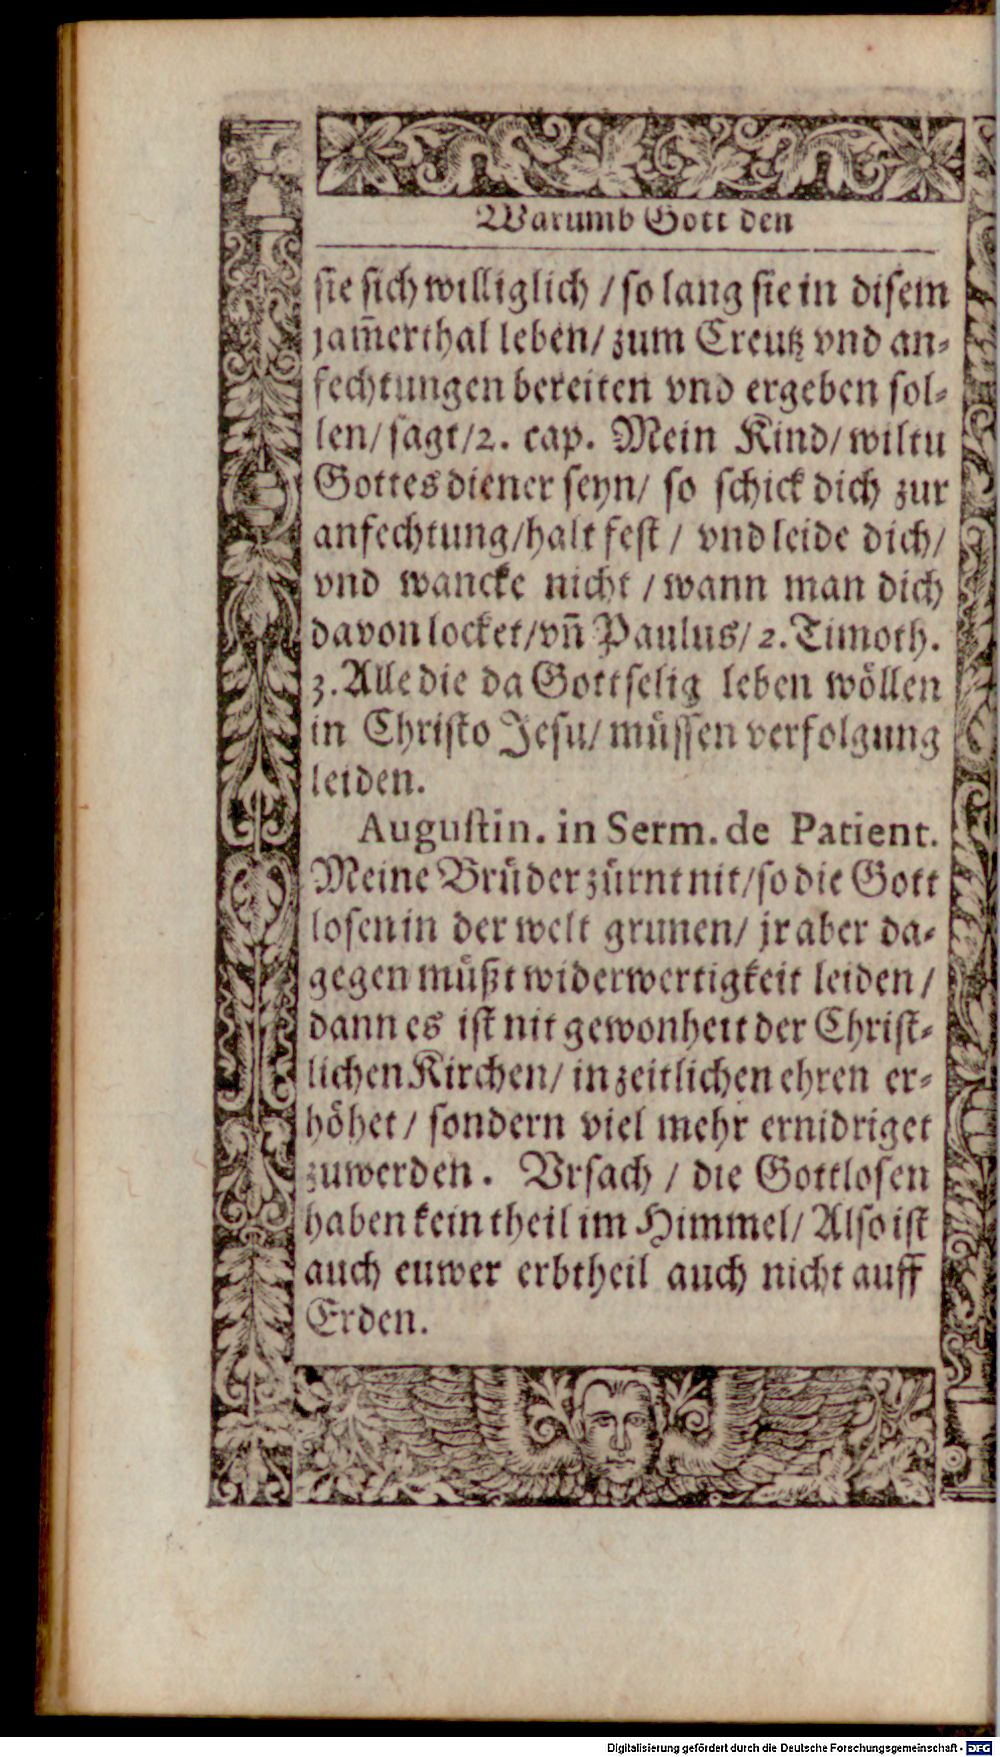 Warumb Gott den
sie sich williglich / so lang sie in disem
jam̅erthal leben / zum Creutz vnd an-
fechtungen bereiten vnd ergeben sol-
len / sagt / 2. cap. Mein Kind / wiltu
Gottes diener seyn / so schick dich zur
anfechtung / halt fest / vnd leide dich /
vnd wancke nicht / wann man dich
davon locket / vn̅ Paulus / 2. Timoth.
3. Alle die da Gottselig leben wöllen
in Christo Jesu / müssen verfolgung
leiden.
Augustin. in Serm. de Patient.
Meine Brüder zürnt nit / so die Gott
losen in der welt grunen / jr aber da-
gegen müßt widerwertigkeit leiden /
dann es ist nit gewonheit der Christ-
lichen Kirchen / in zeitlichen ehren er-
höhet / sondern viel mehr ernidriget
zuwerden. Vrsach / die Gottlosen
haben kein theil im Himmel / Also ist
auch euwer erbtheil auch nicht auff
Erden.
Digitalisierung gefördert durch die Deutsche Forschungsgemeinschaft - DFG